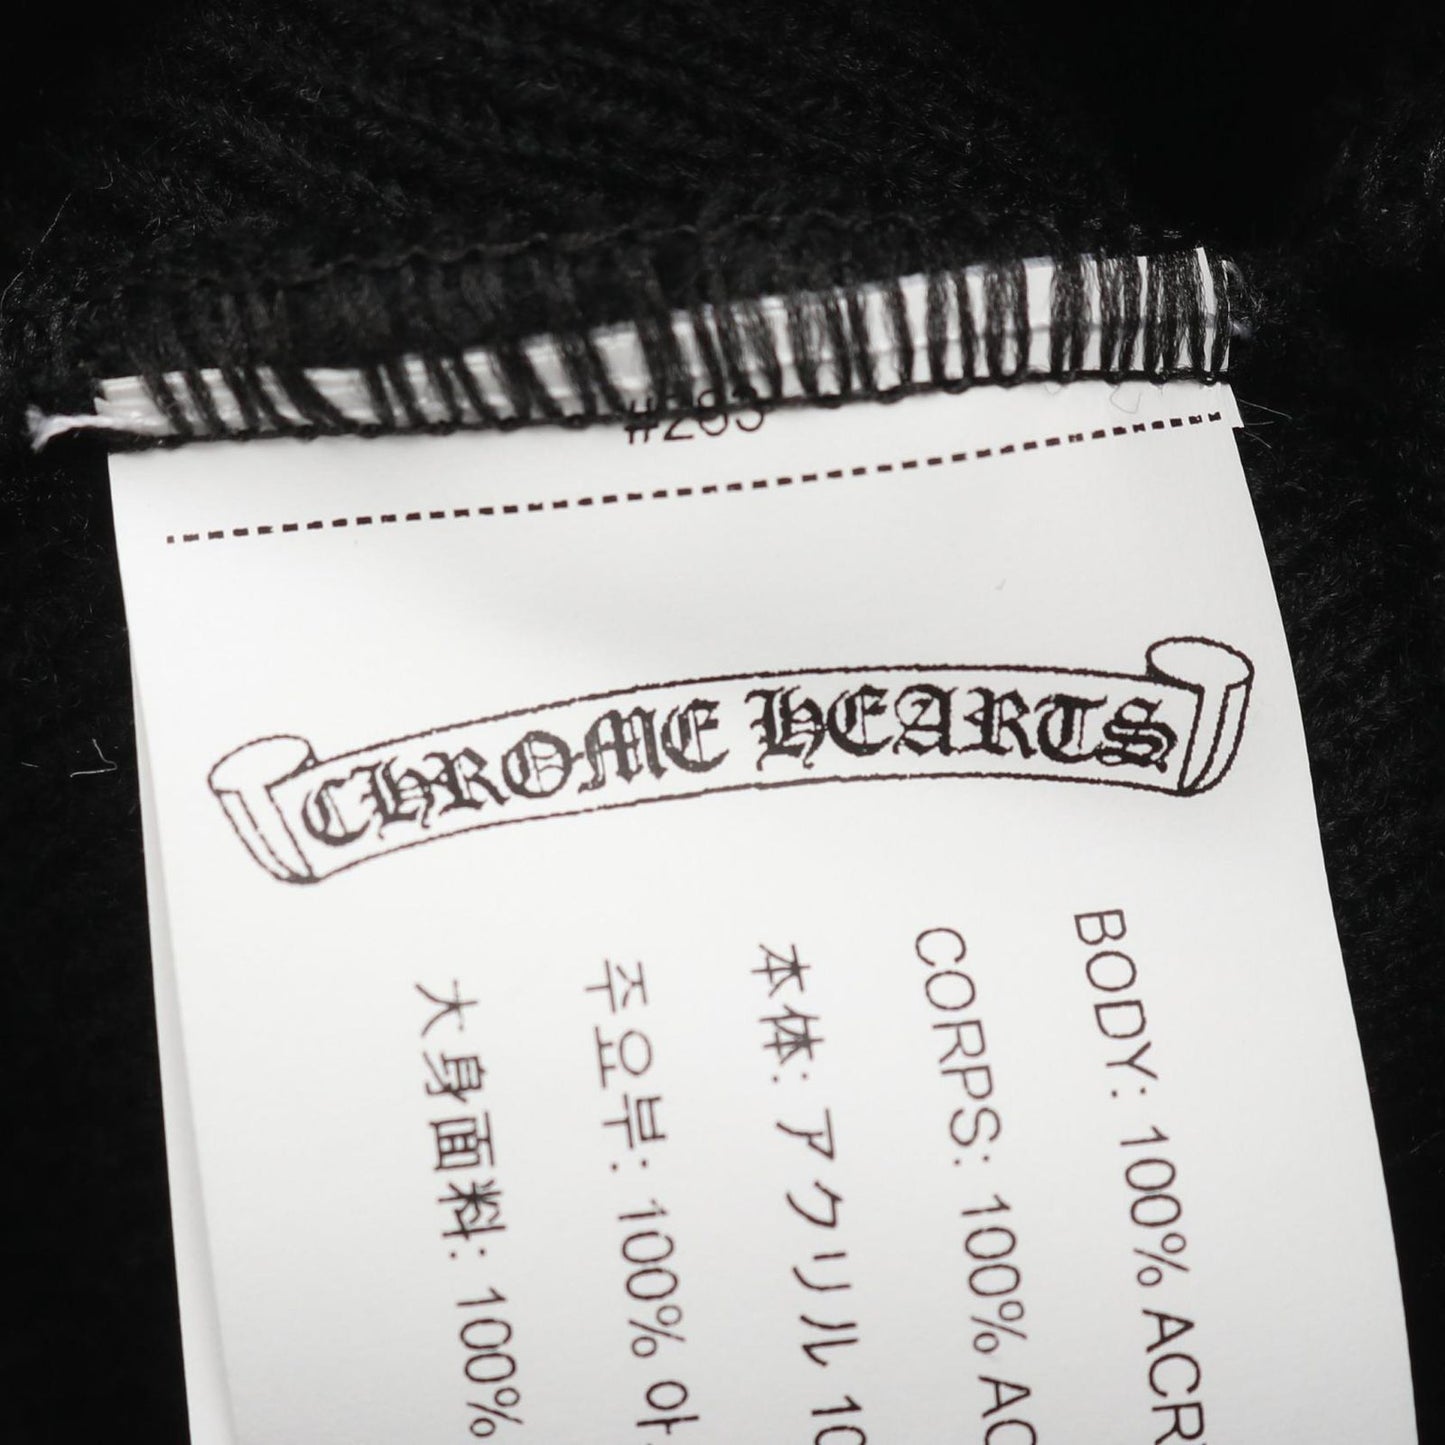 CHROME HEARTS
BODY: 100% ACR
CORPS: 100% AC
本体: アクリル 10
주요부: 100% 아
大身面料: 100%